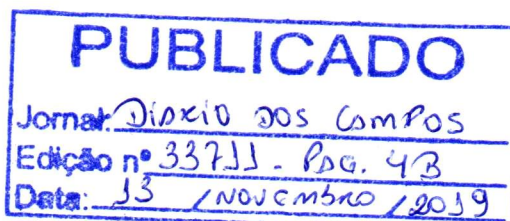 PUBLICADO
Jornal: DIÁRIO DOS CAMPOS
Edição nº 33711 - PÁG. 4B
Data: 13 / NOVEMBRO / 2019